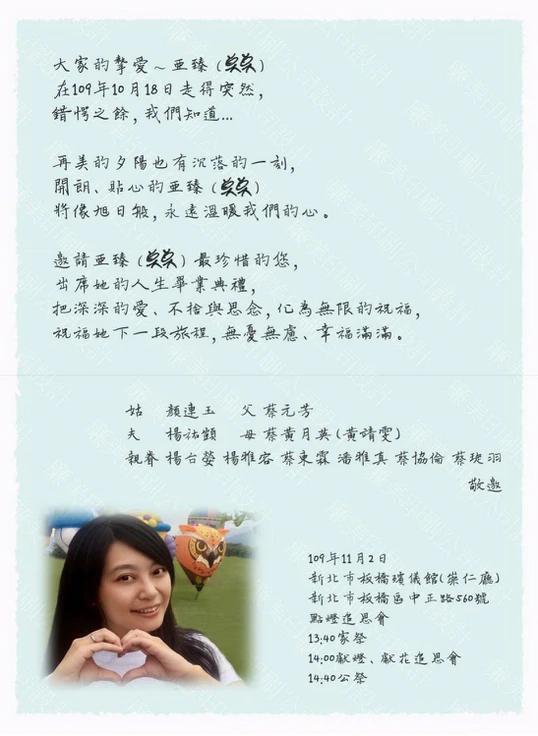 大家的摯愛～亚臻(臭臭)
在109年10月18日走得突然,
錯愕之餘,我們知道...
再美的夕陽也有沉落的一刻,
開朗、貼心的亚臻(臭臭)
將像旭日般,永遠溫暖我們的心。
邀請亚臻(臭臭)最珍惜的您,
出席她的人生畢業典禮,
把深深的愛、不捨與思念,化為無限的祝福,
祝福她下一段旅程,無憂無慮、幸福滿滿。
姑 顏連玉 父 蔡元芳
夫 楊祐顗 母 蔡黃月英(黃靖雯)
親眷 楊台螢 楊雅容 蔡東霖 潘雅真 蔡協倫 蔡琬羽
敬邀
109年11月2日
新北市板橋殯儀館(崇仁廳)
新北市板橋區中正路560號
點燈追思會
13:40家祭
14:00獻燈、獻花追思會
14:40公祭